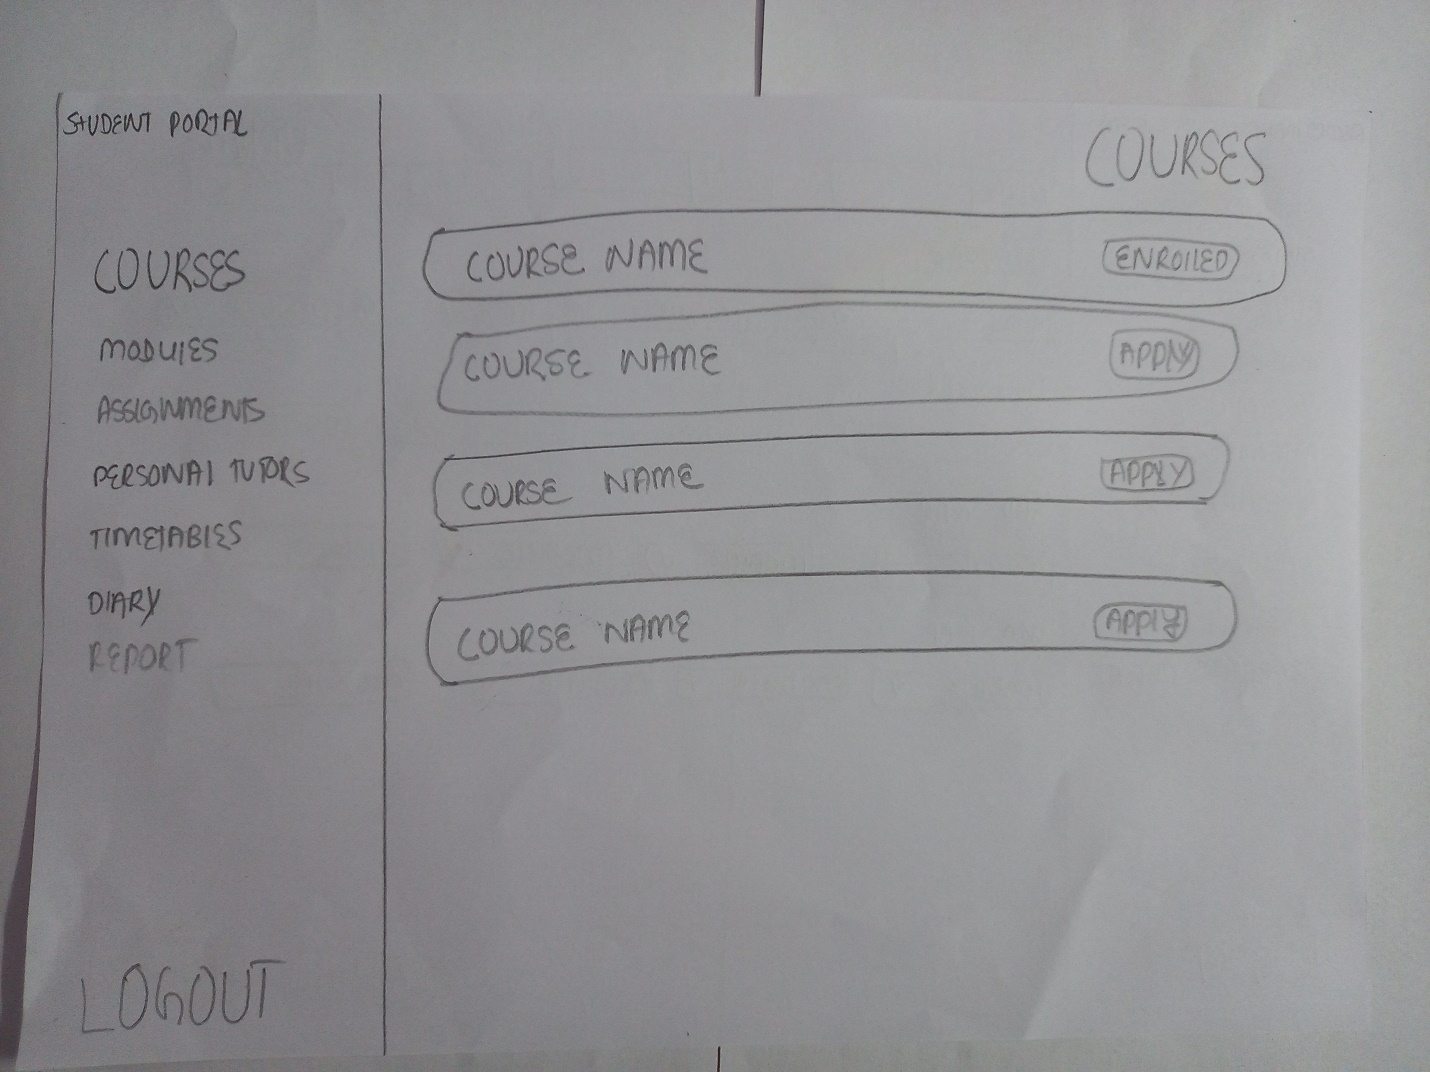 STUDENT PORTAL
COURSES
MODULES
ASSIGNMENTS
PERSONAL TUTORS
TIMETABLES
DIARY
REPORT
LOGOUT
COURSES
COURSE NAME ENROLLED
COURSE NAME APPLY
COURSE NAME APPLY
COURSE NAME APPLY